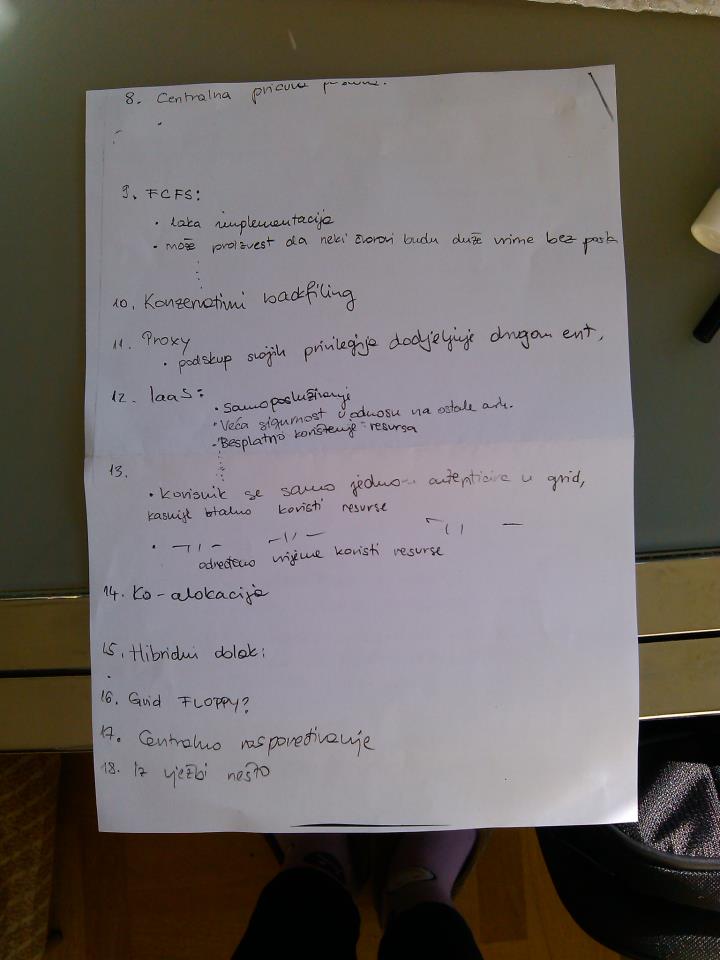 8. Centralna
9. FCFS:
• laka implementacija
• može proizvest da neki čvorovi budu duže vrime bez posla
10. Konzervativni backfiling
11. Proxy
• podskup svojih privilegija dodjeljuje drugom ent,
12. IaaS:
• Samoposluživanje
• Veća sigurnost u odnosu na ostale arh.
• Besplatno korištenje resursa
13.
• Korisnik se samo jednom u grid,
kasnije stalno koristi resurse
• —||— —||— —||—
određeno vrijeme koristi resurse
14. Ko-alokacija
15. Hibridni oblak:
16. Grid FLOPPY?
17. Centralno raspoređivanje
18. Iz vježbi nešto